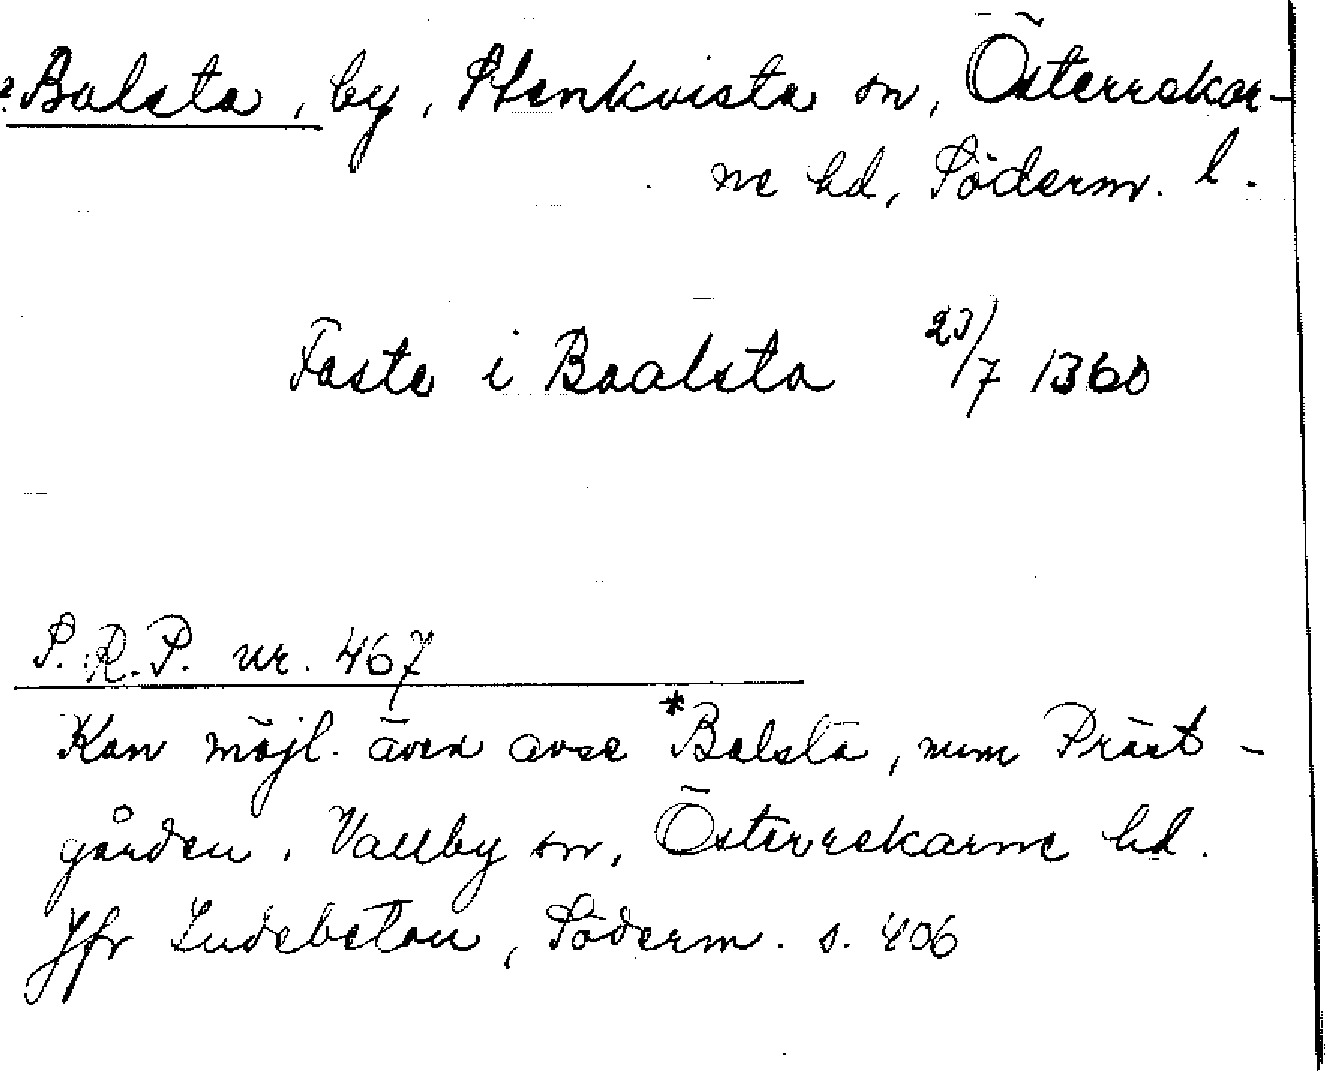 ?Balsta, by, Stenkvista sn, Österrekar-
ne hd, Söderm. l.
Faste i Baalsta 23/7 1360
S.R.P. nr. 467
Kan möjl. även avse *Balsta, num Präst-
gården, Vallby sn, Österrekarne hd.
Jfr Sudebetou, Söderm. s. 406